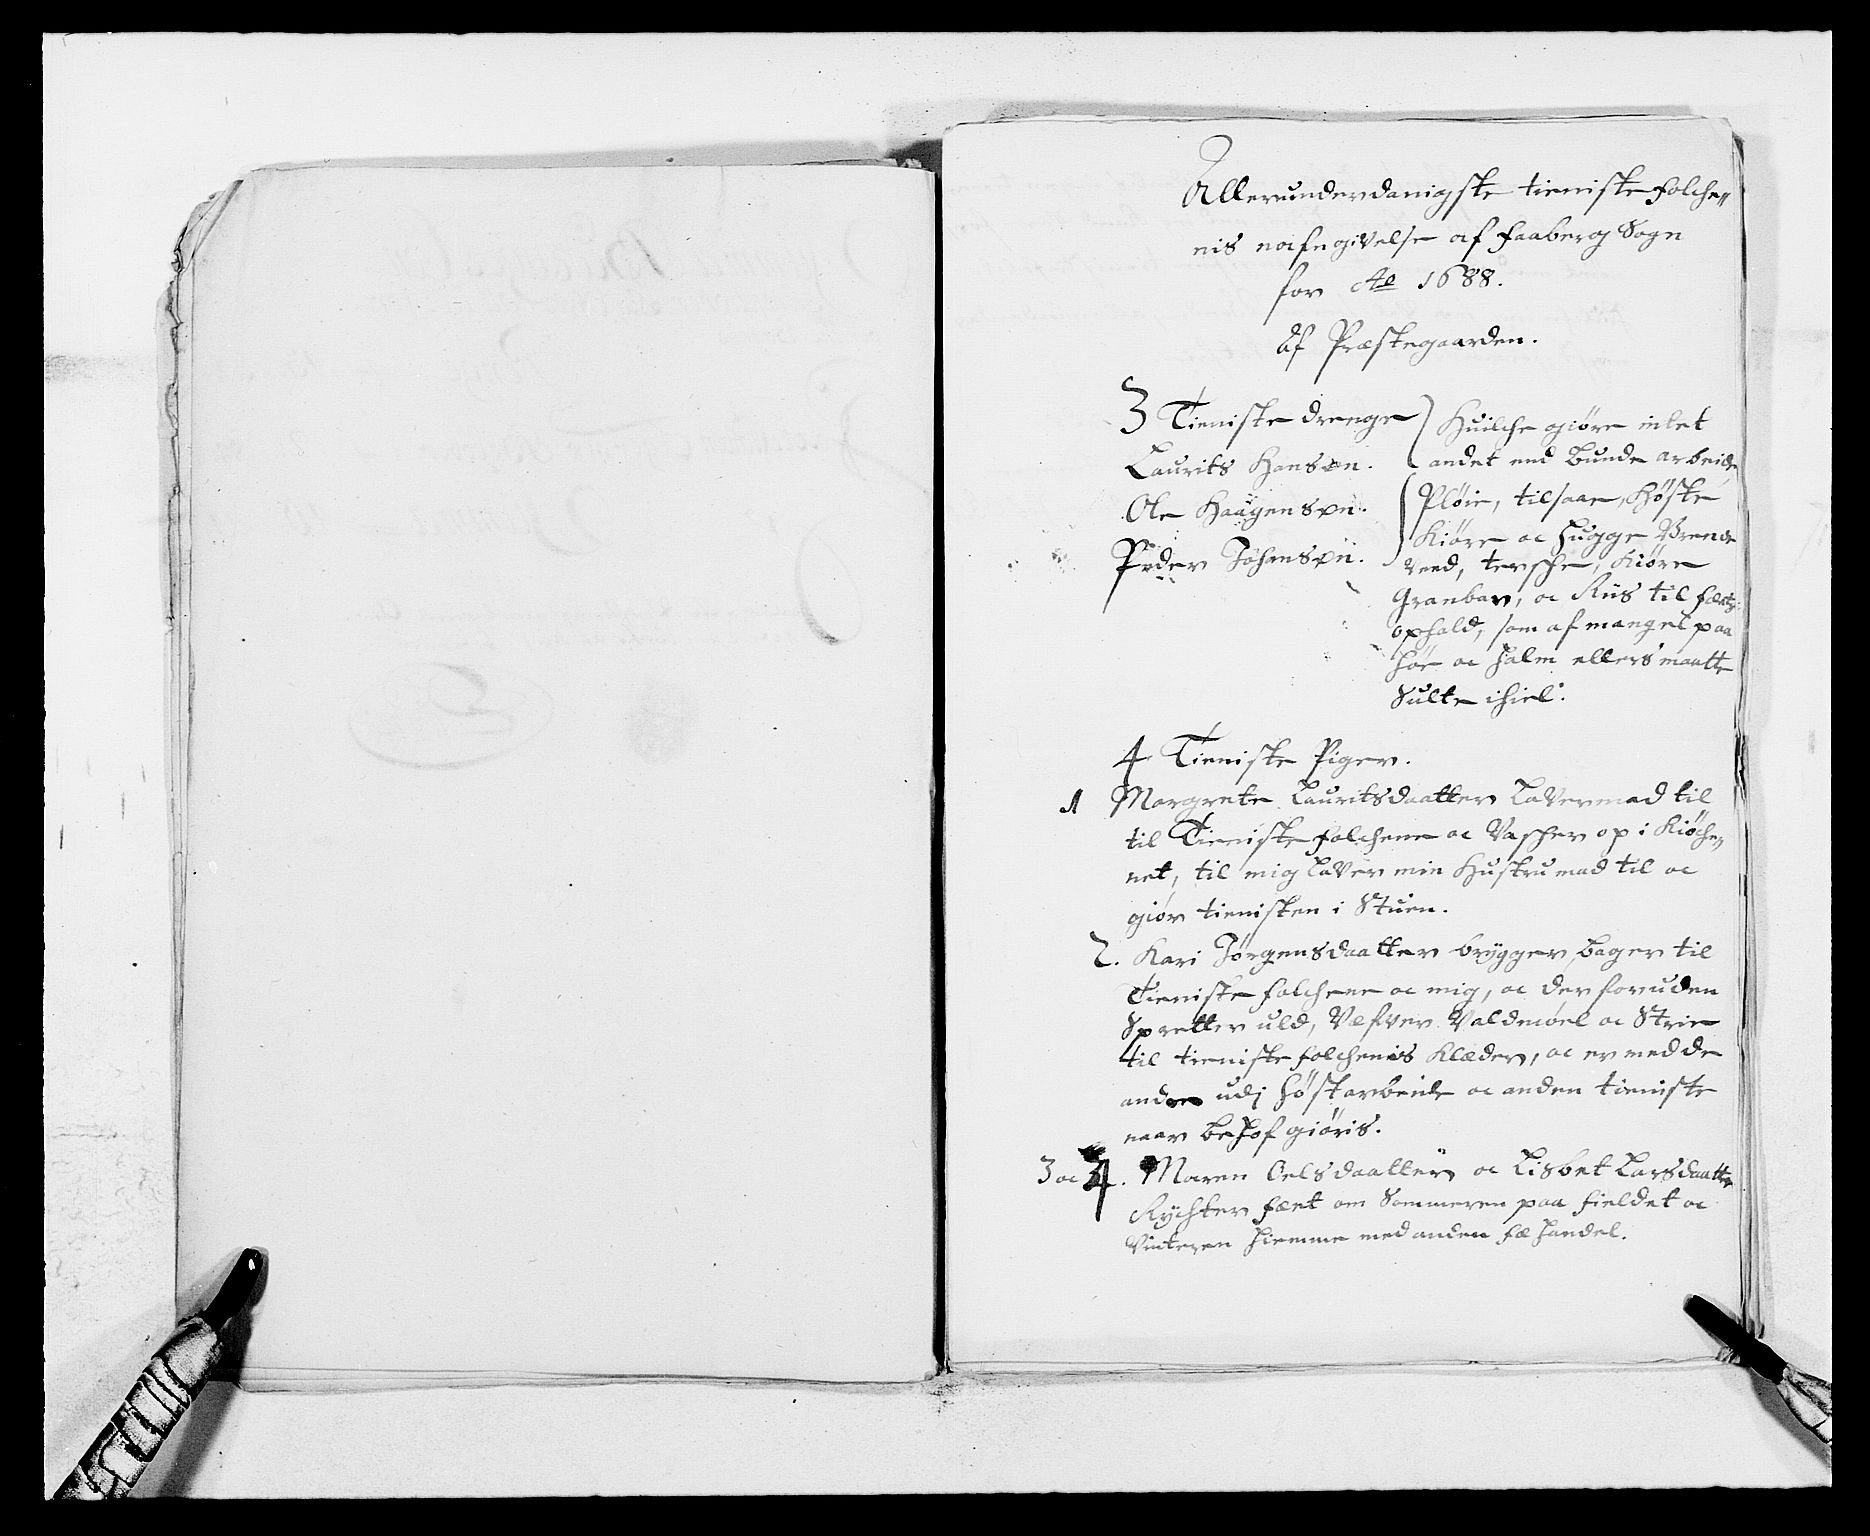 Allerunderdanigste tieniste folche„
nis nafngivelse af Faaberg Sogn
for Ao 1688.
Af Præstegaarden.
3 Tieniste drenge
Laurits Hansøn.
Ole Haagensøn.
Peder Johansøn.
Huilche giøre intet
andet end bunde arbeide
Pløie, tilsaae, Høste
Kiøre oc hugge Brende
Veed, tersche, Kiøre
Granbar, oc Riis til fæets
ophold, som af mangel paa
høe oc halm ellers maatte
Sulte ihiel.
4 Tieniste Piger.
1 Margrete Lauritsdaatter laver mad til
til Tieniste folchene oc Vascher op i Kiøche„
net, til mig laver min Hustru mad til oc
giør tienisten i Stuen.
2. Kari Jørgensdaatter brygger, bager til
Tieniste folchene oc mig, oc der foruden
Spretter uld, Væfver Valdmoel oc Strie
til tieniste folchenis Klæder, oc er med de
andre udj høstarbeide oc anden tieniste
naar behof giøris.
3 oc 4. Maren Oelsdaatter oc Lisbet Larsdaatter
Rychter fæet om Sommeren paa fieldet oc
Vinteren hiemme med anden fæ handel.